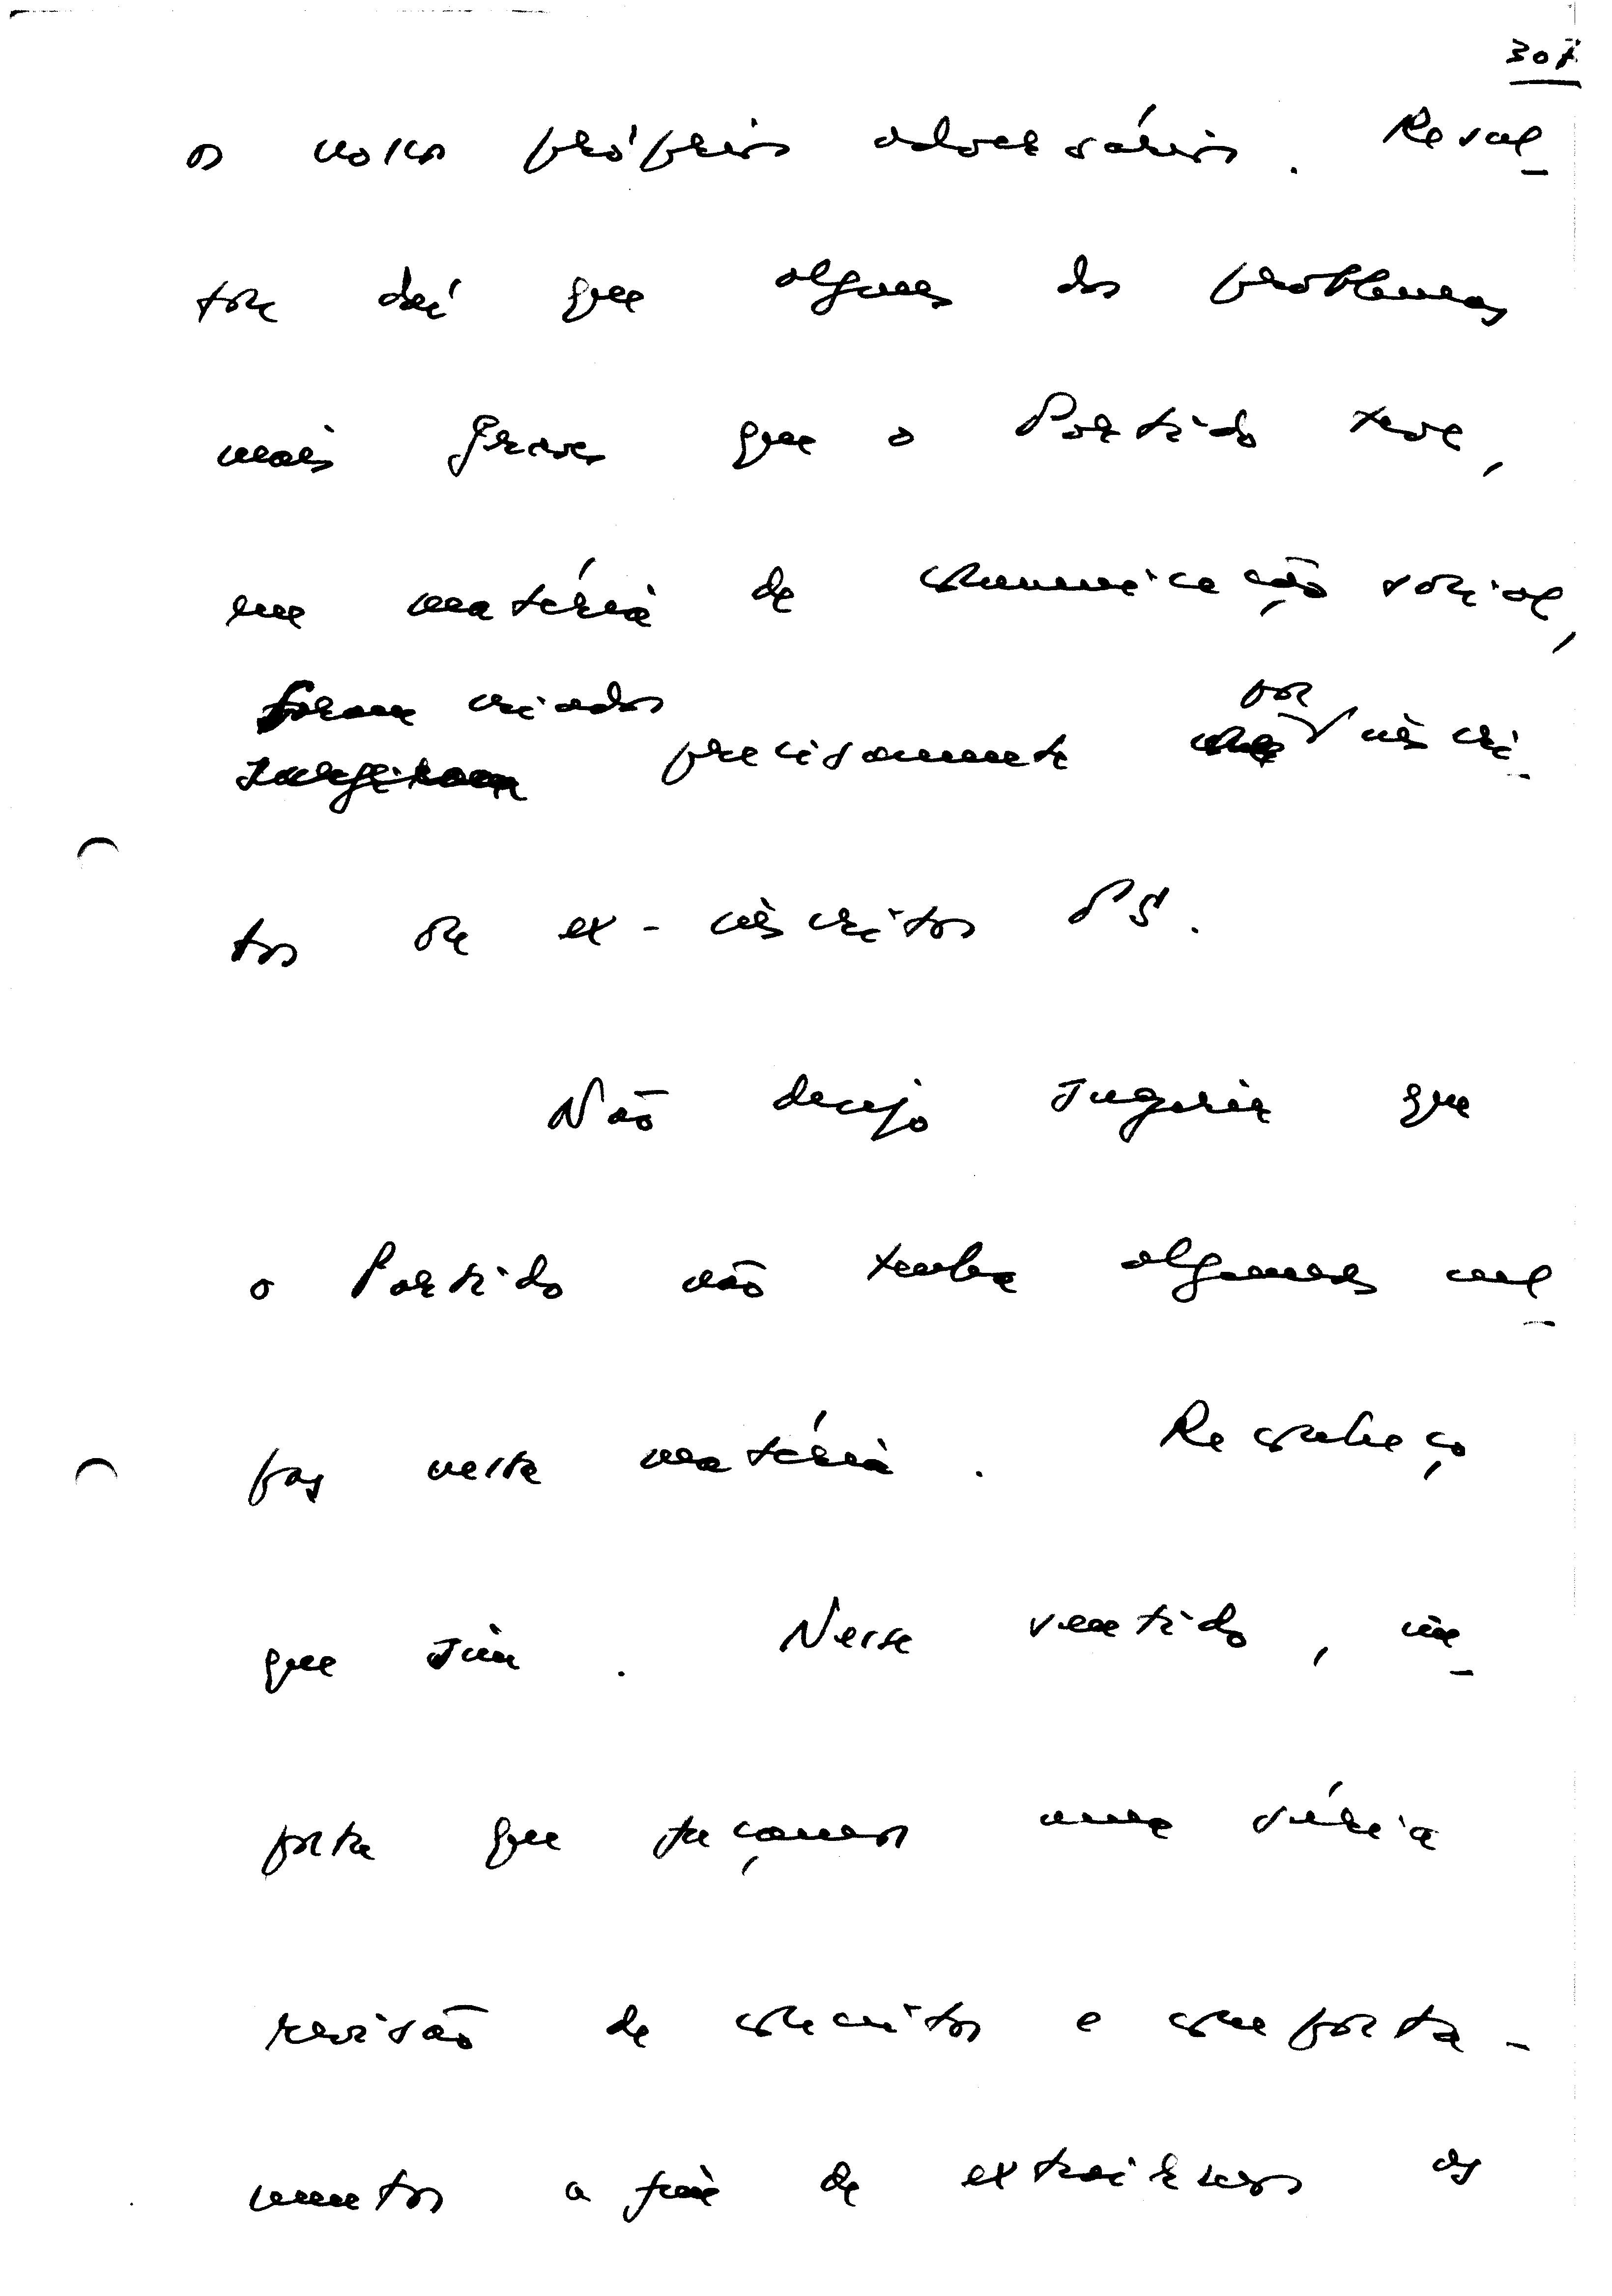 307
os nossos próprios adversários. Resul-
tou daí que alguns dos problemas
mais graves que o Partido teve,
em matéria de comunicação social,
foram criados por
surgiram precisamente inscri-
tos ou ex-inscritos PS.
Não desejo sugerir que
o Partido não tenha algumas cul-
pas nesta matéria. Reconheço
que sim. Nesse sentido, im-
porta que façamos uma séria
revisão de conceitos e comporta-
mentos a fim de extrairmos as